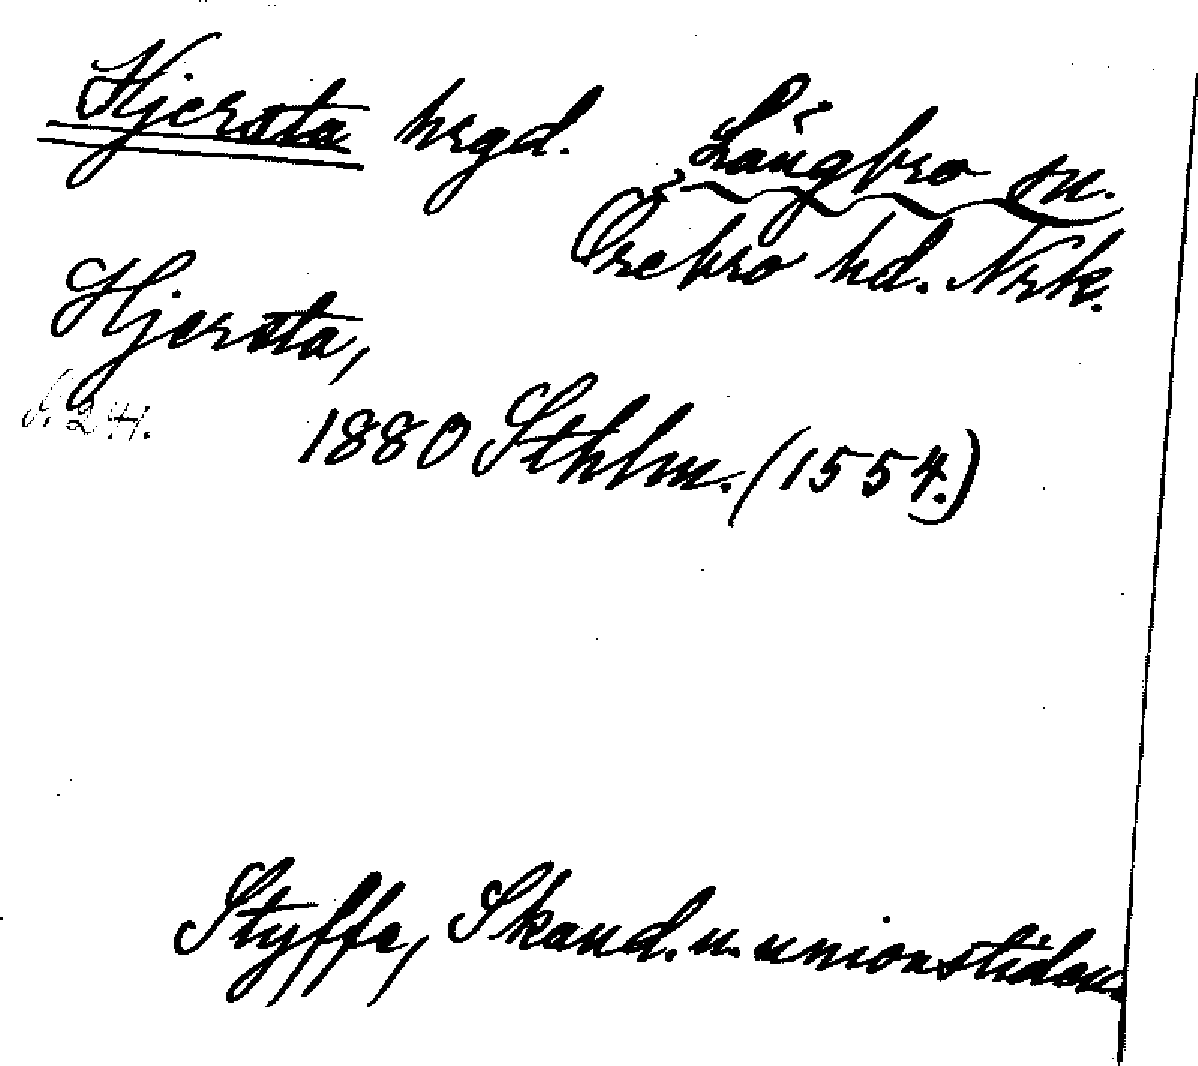 Hjersta hrgd. Längbro sn.
Örebro hd. Nrk.
Hjersta,
s. 241.
1880 Sthlm. (1554.)
Styffe, Skand. u. unionstiden.